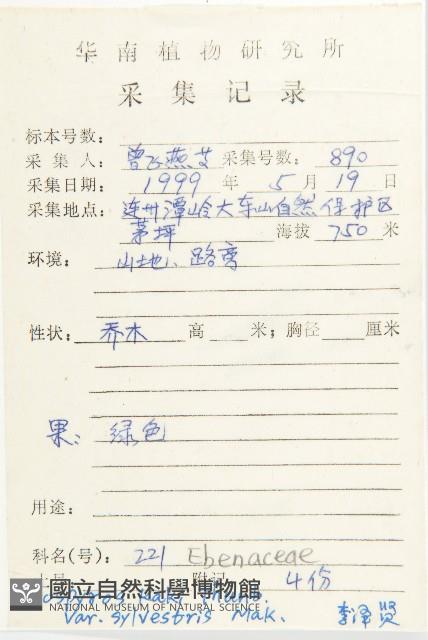 华南植物研究所
采集记录
标本号数：
采集人： 曾飞燕等 采集号数： 890
采集日期： 1999 年 5 月 19 日
采集地点： 连州潭岭大东山自然保护区
茅坪 海拔 750 米
环境： 山地、路旁
性状： 乔木 高 米；胸径 厘米
果： 绿色
用途：
科名(号)： 221 Ebenaceae
附记 4份
國立自然科學博物館
NATIONAL MUSEUM OF NATURAL SCIENCE
Diospyros kaki Thunb.
Var. sylvestris Mak. 李泽贤